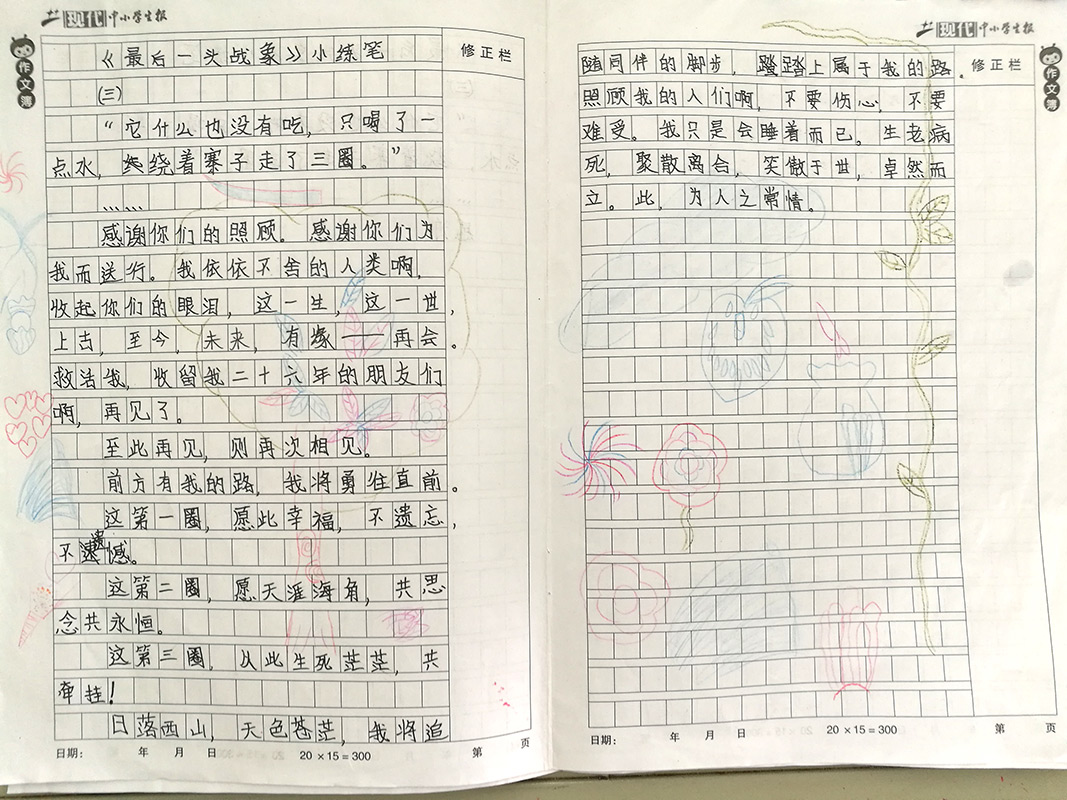 现代中小学生报
作文簿
修正栏
《最后一头战象》小练笔
(三)
“它什么也没有吃，只喝了一
点水，绕着寨子走了三圈。”
……
感谢你们的照顾。感谢你们为
我而送行。我依依不舍的人类啊，
收起你们的眼泪，这一生，这一世，
上古，至今，未来，有缘——再会。
救活我，收留我二十六年的朋友们
啊，再见了。
至此再见，则再次相见。
前方有我的路，我将勇往直前。
这第一圈，愿此幸福，不遗忘，
不遗憾。
这第二圈，愿天涯海角，共思
念共永恒。
这第三圈，从此生死茫茫，共
牵挂！
日落西山，天色苍茫，我将追
日期： 年 月 日 20×15=300 第 页
现代中小学生报
作文簿
修正栏
随同伴的脚步，踏上属于我的路。
照顾我的人们啊，不要伤心，不要
难受。我只是会睡着而已。生老病
死，聚散离合，笑傲于世，卓然而
立。此，为人之常情。
日期： 年 月 日 20×15=300 第 页